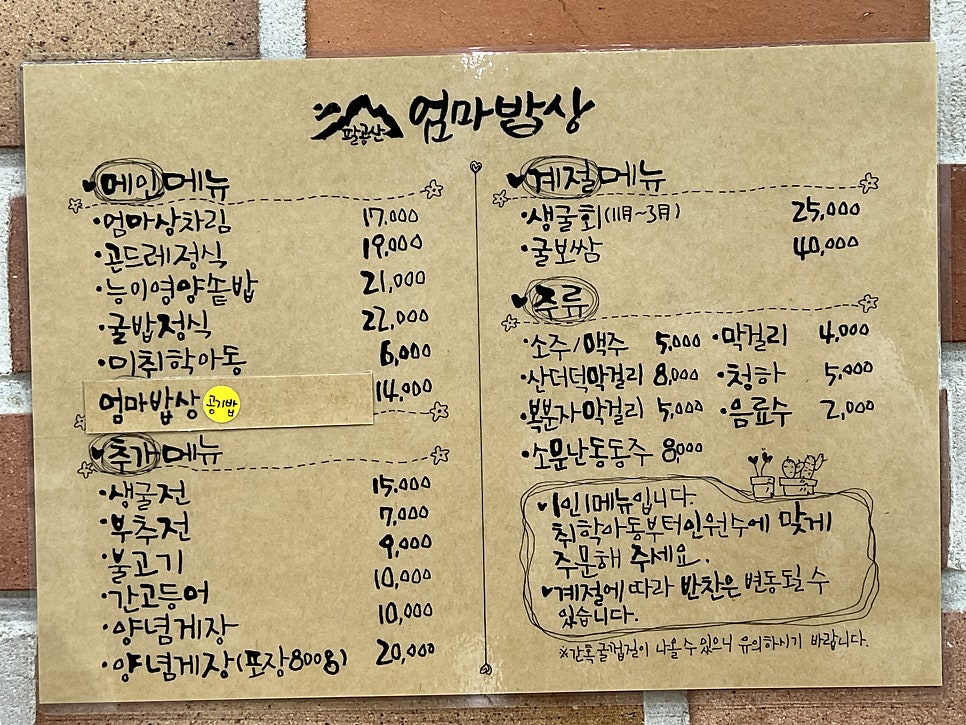 팔공산 엄마밥상
메인메뉴
·엄마상차림 17,000
·곤드레정식 19,000
·능이영양솥밥 21,000
·굴밥정식 22,000
·미취학아동 6,000
엄마밥상 공기밥 14,000
추가메뉴
·생굴전 15,000
·부추전 7,000
·불고기 9,000
·간고등어 10,000
·양념게장 10,000
·양념게장(포장800g) 20,000
계절메뉴
·생굴회(11月~3月) 25,000
·굴보쌈 40,000
주류
·소주/맥주 5,000 ·막걸리 4,000
·산더덕막걸리 8,000 ·청하 5,000
·복분자막걸리 5,000 ·음료수 2,000
·소문난동동주 8,000
1인1메뉴입니다.
취학아동부터인원수에 맞게
주문해 주세요.
계절에 따라 반찬은 변동될 수
있습니다.
※간혹굴껍질이 나올수 있으니 유의하시기 바랍니다.